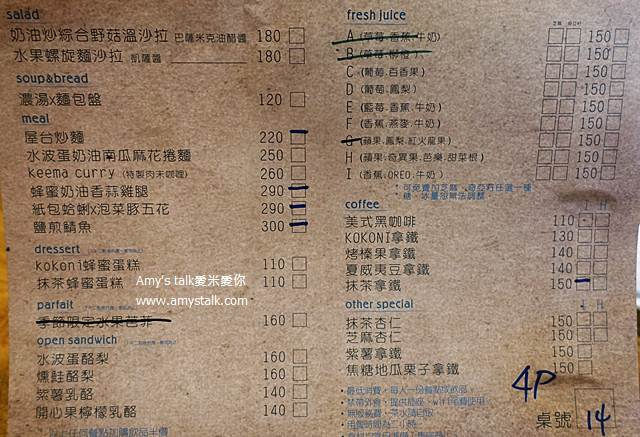 salad
奶油炒綜合野菇溫沙拉 巴薩米克油醋醬 180
水果螺旋麵沙拉 凱薩醬 180
soup&bread
濃湯x麵包盤 120
meal
屋台炒麵 220
水波蛋奶油南瓜麻花捲麵 250
Keema curry (特製肉末咖喱) 260
蜂蜜奶油香蒜雞腿 290
紙包蛤蜊x泡菜豚五花 290
鹽煎鯖魚 300
dressert
kokoni蜂蜜蛋糕 110
抹茶蜂蜜蛋糕 110
parfait
季節限定水果芭菲 160
open sandwich
水波蛋酪梨 160
燻鮭酪梨 160
紫薯乳酪 140
開心果檸檬乳酪 140
fresh juice
A (草莓.香蕉.牛奶) 150
B (草莓.柳橙) 150
C (葡萄.百香果) 150
D (葡萄.鳳梨) 150
E (藍莓.香蕉.牛奶) 150
F (香蕉.燕麥.牛奶) 150
G (蘋果.鳳梨.紅火龍果) 150
H (蘋果.奇異果.芭樂.甜菜根) 150
I (香蕉.OREO.牛奶) 150
coffee I H
美式黑咖啡 110
KOKONI拿鐵 130
烤榛果拿鐵 140
夏威夷豆拿鐵 140
抹茶拿鐵 150
other special I H
抹茶杏仁 150
芝麻杏仁 150
紫薯拿鐵 150
焦糖地瓜栗子拿鐵 150
4P
桌號 14
Amy's talk愛米愛你
www.amystalk.com